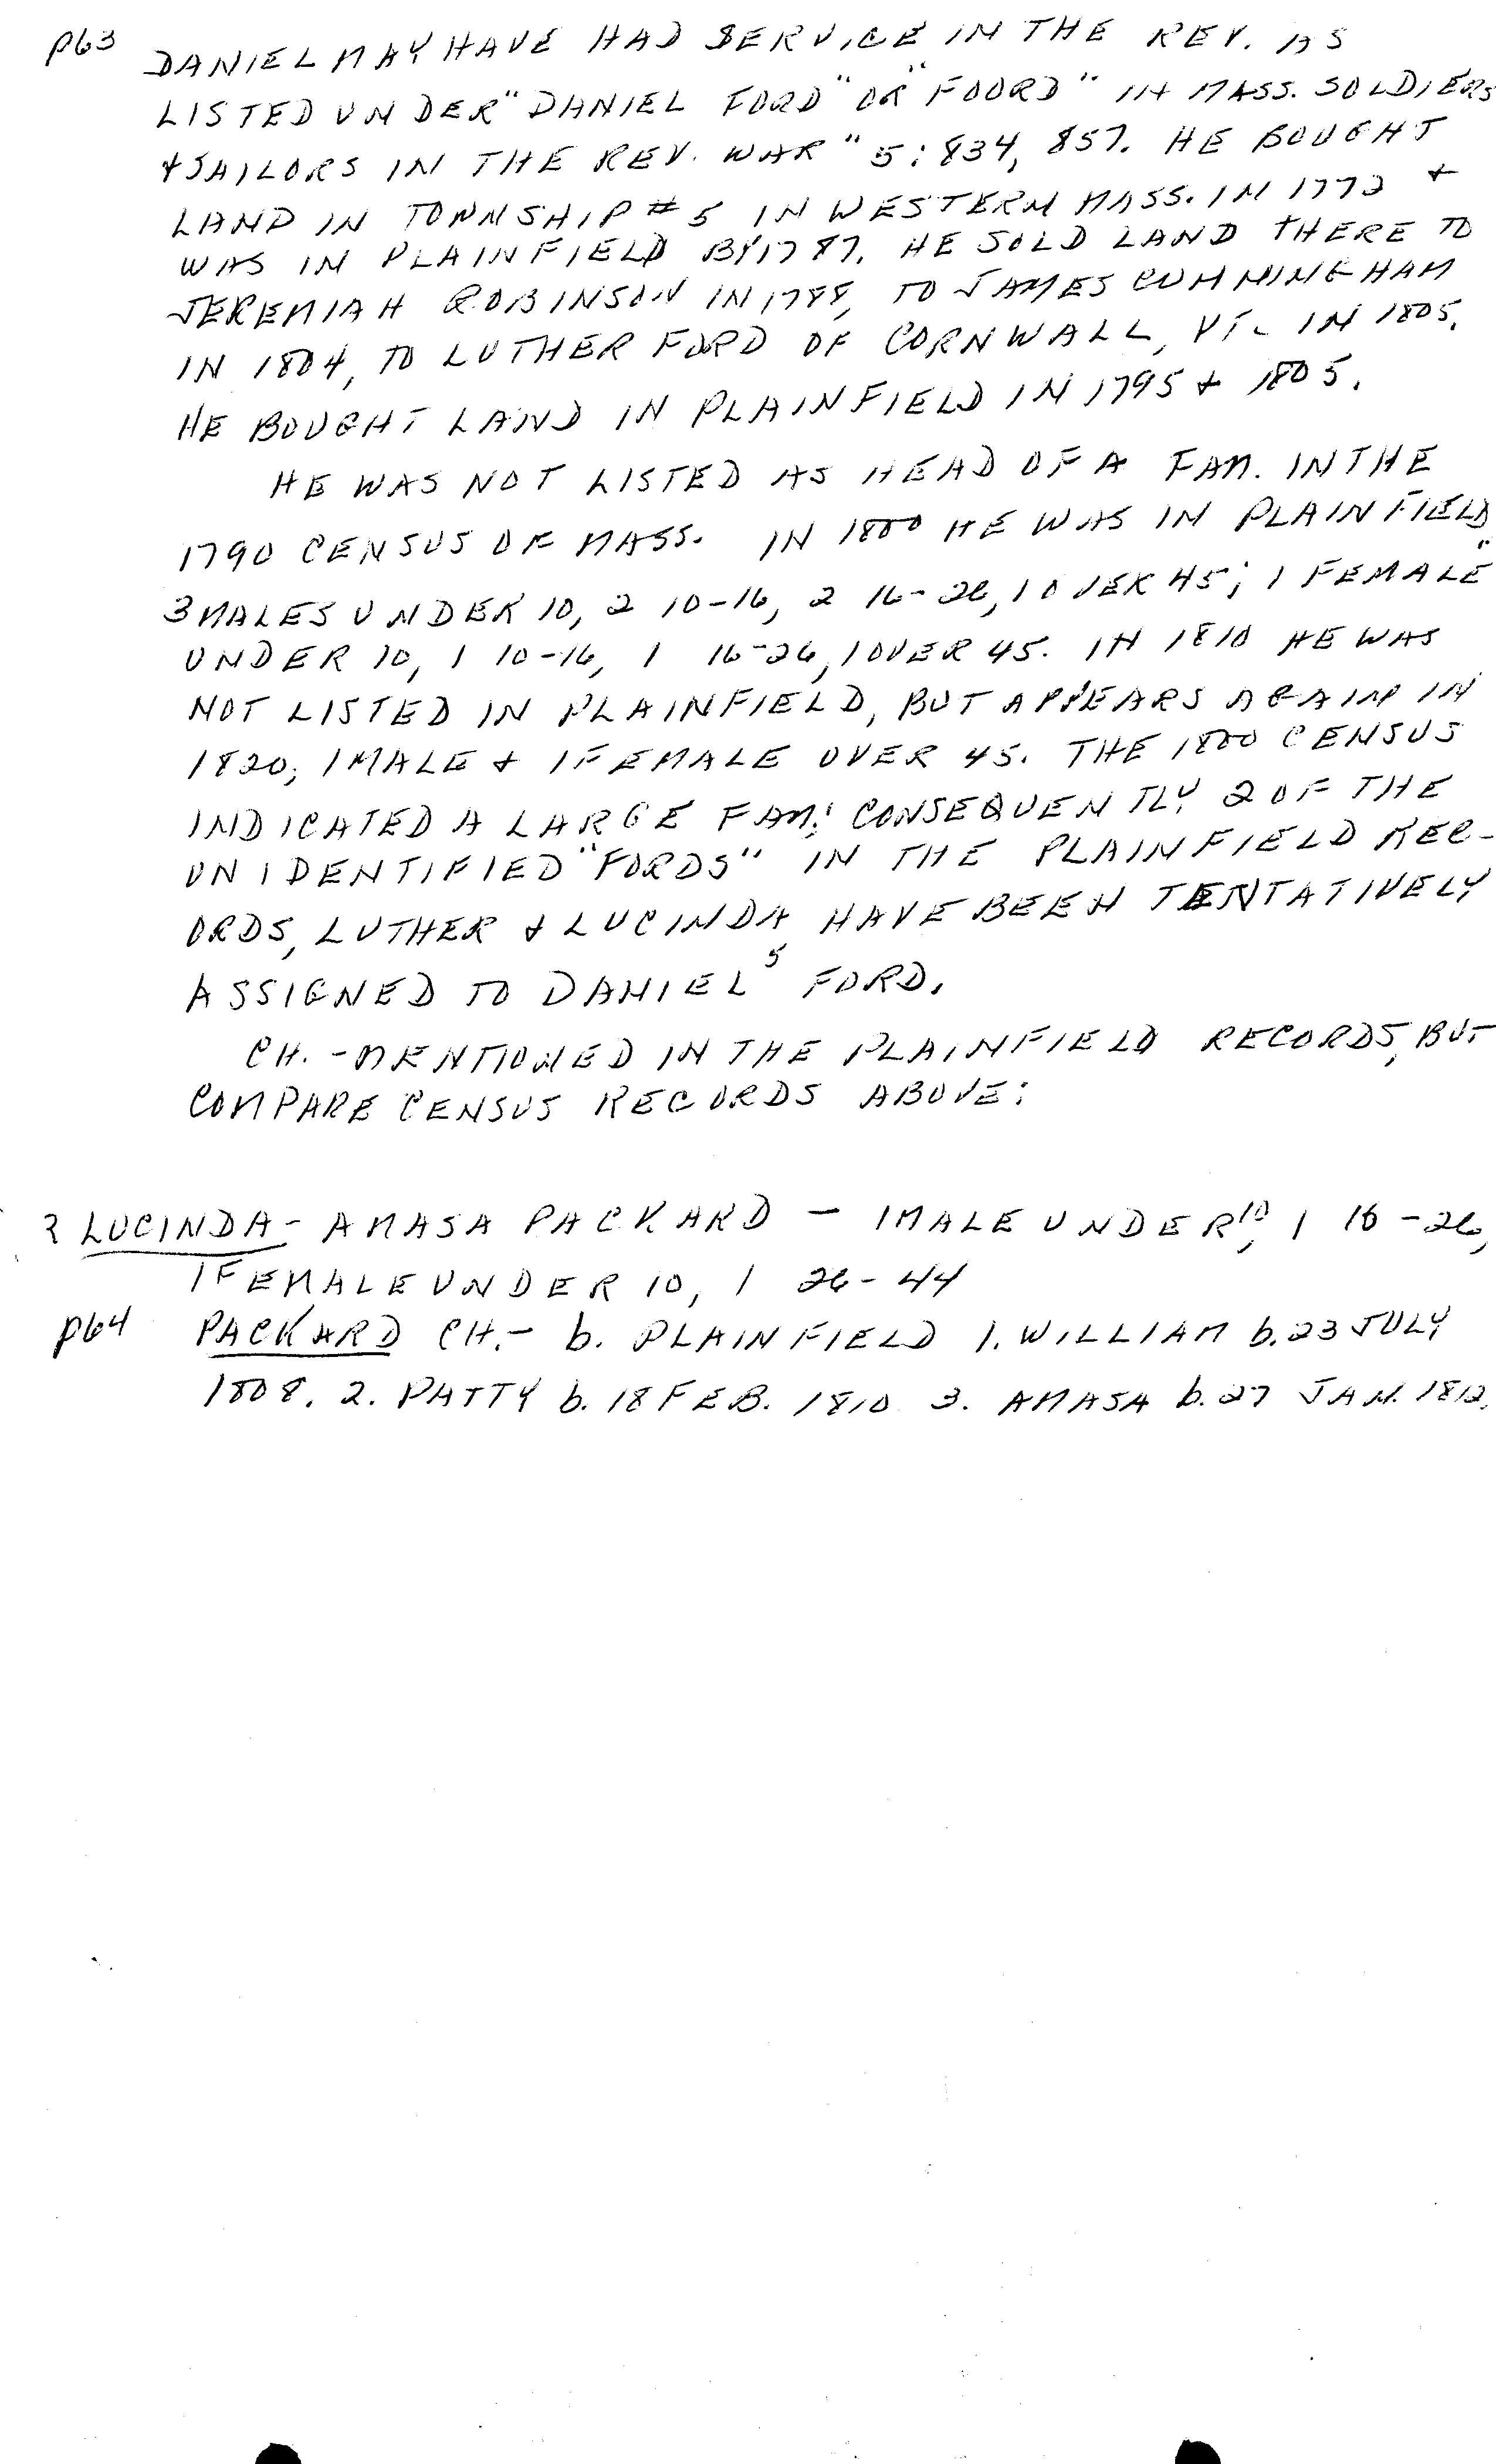 p63 DANIEL MAY HAVE HAD SERVICE IN THE REV. AS
LISTED UNDER "DANIEL FORD" OR "FOORD" IN MASS. SOLDIERS
& SAILORS IN THE REV. WAR" 5:834, 857. HE BOUGHT
LAND IN TOWNSHIP # 5 IN WESTERN MASS. IN 1772 &
WAS IN PLAINFIELD BY 1787. HE SOLD LAND THERE TO
JEREMIAH ROBINSON IN 1788, TO JAMES CUNNINGHAM
IN 1804, TO LUTHER FORD OF CORNWALL, VT. IN 1805.
HE BOUGHT LAND IN PLAINFIELD IN 1795 & 1805.
HE WAS NOT LISTED AS HEAD OF A FAM. IN THE
1790 CENSUS OF MASS. IN 1800 HE WAS IN PLAINFIELD
3 MALES UNDER 10, 2 10-16, 2 16-26, 1 OVER 45; 1 FEMALE
UNDER 10, 1 10-16, 1 16-26, 1 OVER 45. IN 1810 HE WAS
NOT LISTED IN PLAINFIELD, BUT APPEARS AGAIN IN
1820; 1 MALE & 1 FEMALE OVER 45. THE 1800 CENSUS
INDICATED A LARGE FAM; CONSEQUENTLY 2 OF THE
UNIDENTIFIED "FORDS" IN THE PLAINFIELD REC-
ORDS, LUTHER & LUCINDA HAVE BEEN TENTATIVELY
ASSIGNED TO DANIEL⁵ FORD.
CH. - MENTIONED IN THE PLAINFIELD RECORDS, BUT
COMPARE CENSUS RECORDS ABOVE:
? LUCINDA - AMASA PACKARD - 1 MALE UNDER 10, 1 16-26,
1 FEMALE UNDER 10, 1 26-44
p64 PACKARD CH. - b. PLAINFIELD 1. WILLIAM b. 23 JULY
1808. 2. PATTY b. 18 FEB. 1810 3. AMASA b. 27 JAN. 1812.